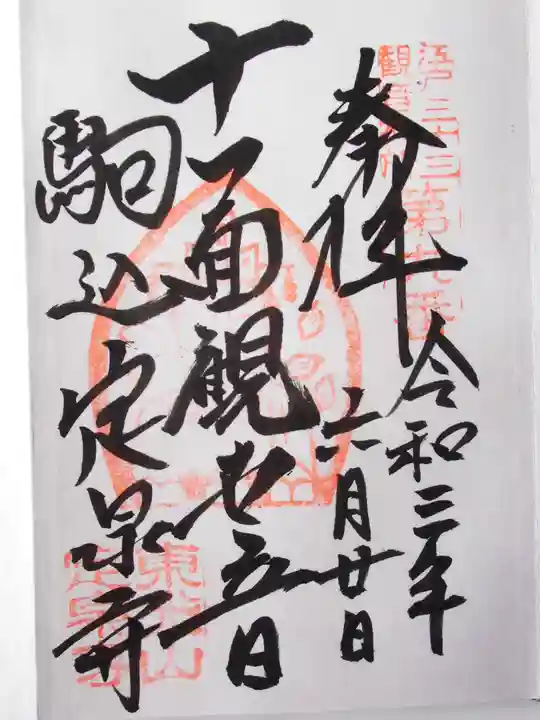 江戸三十三
観音札所
第九番
奉拝
令和三年
六月廿日
十一面観世音
駒込定泉寺
東光山
定泉寺